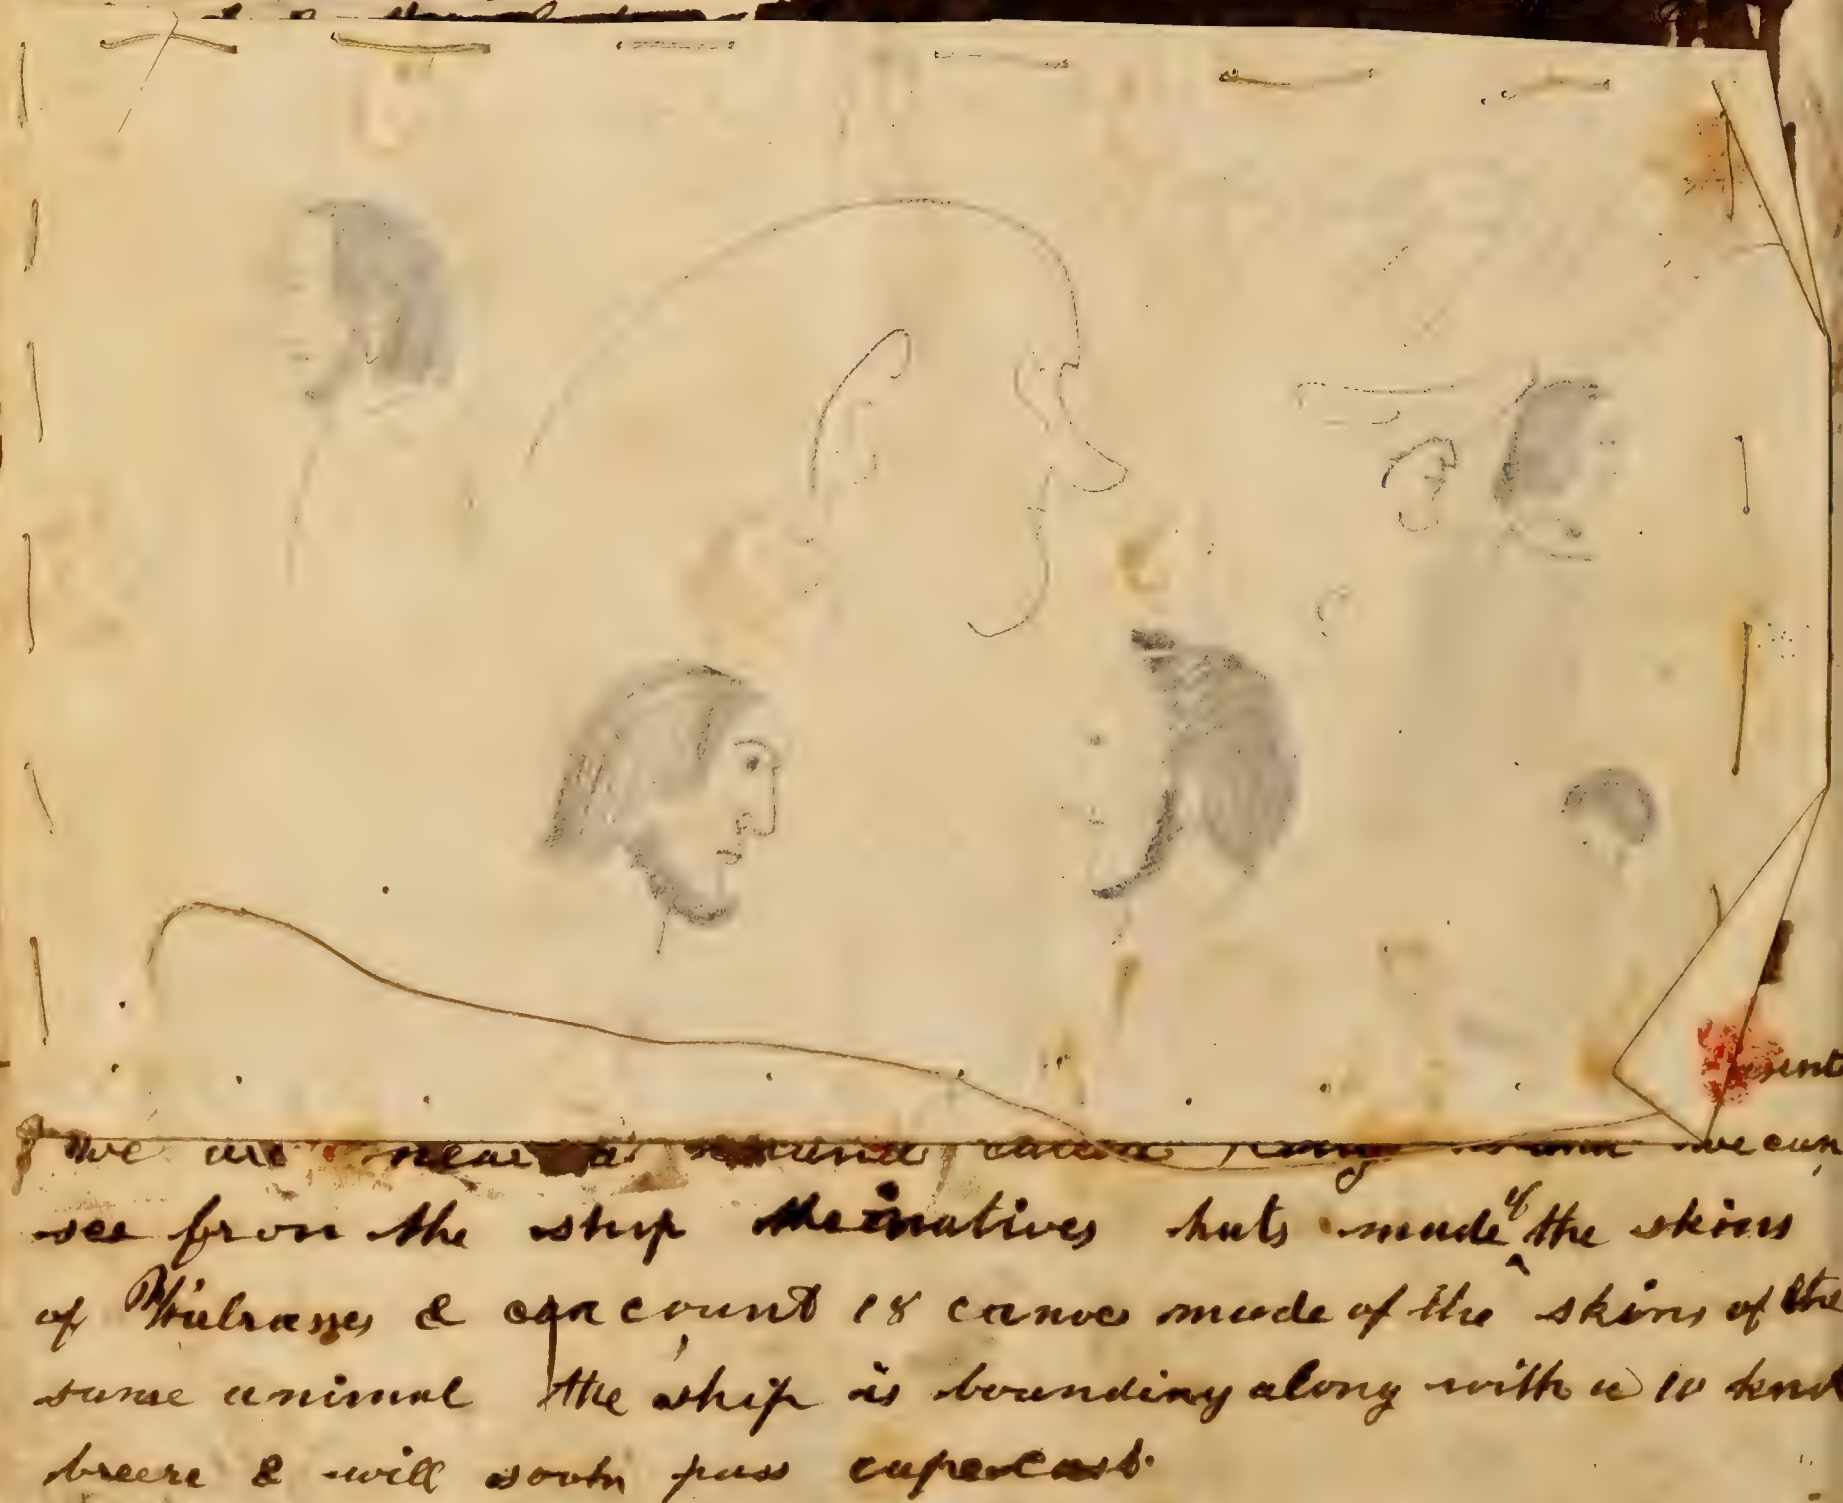 we are near a
see from the ship the natives huts made of the skins
of Walrasses & can count 18 canoes made of the skins of the
same animal the ship is bounding along with a 10 knot
breeze & will soon pass cape East